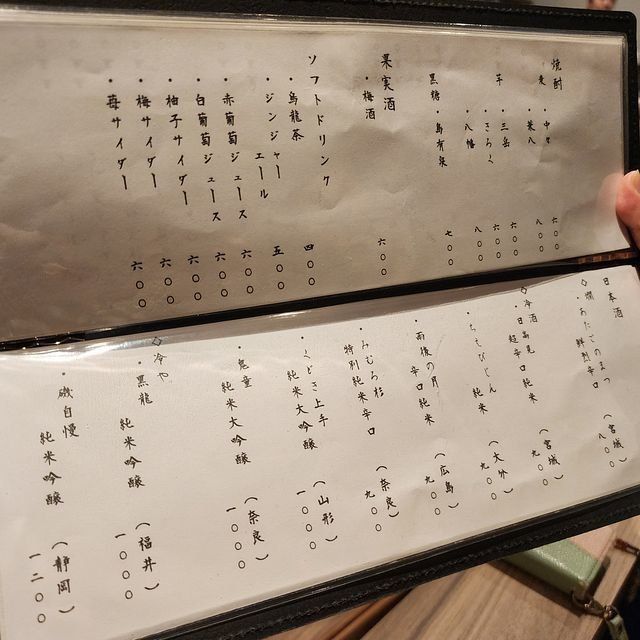 焼酎
麦
・中々 六〇〇
・兼八 八〇〇
芋
・三岳 六〇〇
・きろく 六〇〇
・八幡 八〇〇
黒糖
・島有泉 七〇〇
果実酒
・梅酒 六〇〇
ソフトドリンク
・烏龍茶 四〇〇
・ジンジャーエール 五〇〇
・赤葡萄ジュース 六〇〇
・白葡萄ジュース 六〇〇
・柚子サイダー 六〇〇
・梅サイダー 六〇〇
・苺サイダー 六〇〇
日本酒
◇燗 あたごのまつ (宮城)
鮮烈辛口 八〇〇
◇冷酒
・日高見 (宮城)
超辛口純米 九〇〇
・ちえびじん (大分)
純米 九〇〇
・雨後の月 (広島)
辛口純米 九〇〇
・みむろ杉 (奈良)
特別純米辛口 九〇〇
・くどき上手 (山形)
純米大吟醸 一〇〇〇
・鬼童 (奈良)
純米大吟醸 一〇〇〇
◇冷や
・黒龍 (福井)
純米吟醸 一〇〇〇
・磯自慢 (静岡)
純米吟醸 一二〇〇